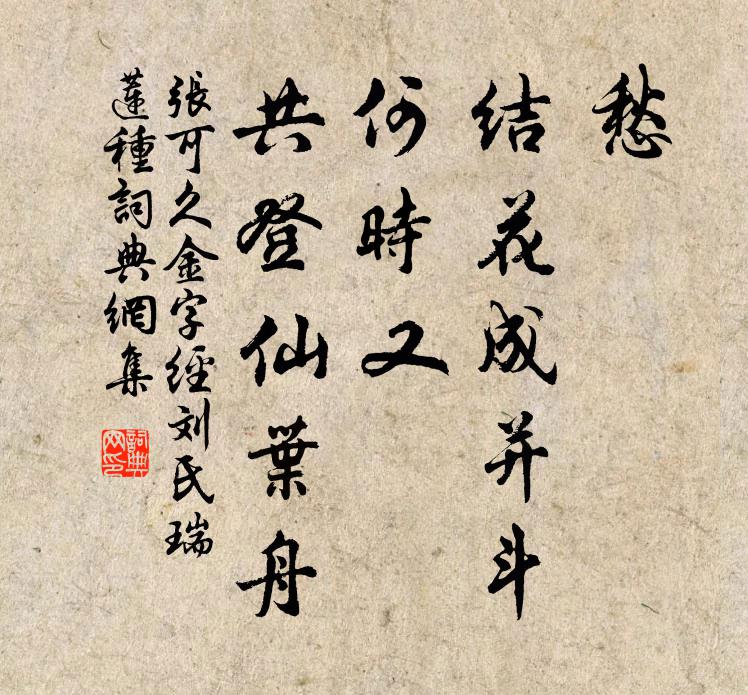 愁
結花成并斗
何時又
共登仙葉舟
張可久金字經刘氏瑞
蓮種詞典網集
詞典
网印